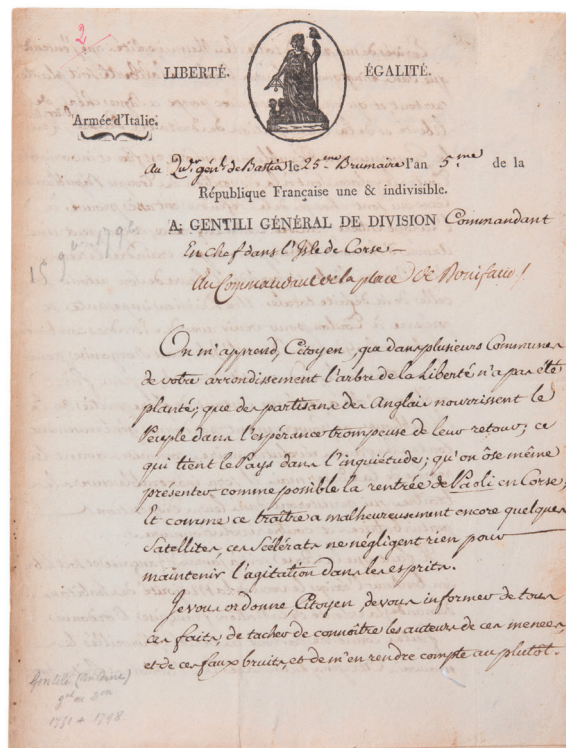 2
LIBERTÉ. ÉGALITÉ.
Armée d'Italie.
Au Qer. génl. de Bastia le 25.me Brumaire l'an 5.me de la
République Française une & indivisible.
A. GENTILI GÉNÉRAL DE DIVISION Commandant
En chef dans l'Isle de Corse
Au Commandant de la place de Bonifacio
15 9bre 1796
On m'apprend, Citoyen, que dans plusieurs Communes
de votre arrondissement l'arbre de la Liberté n'a pas été
planté; que des partisans des Anglais nourrissent le
Peuple dans l'espérance trompeuse de leur retour; ce
qui tient le Pays dans l'inquiétude; qu'on ôse même
présenter comme possible la rentrée de Paoli en Corse;
Et comme ce traître a malheureusement encore quelques
Satellites, ces Scélérats ne négligent rien pour
maintenir l'agitation dans les esprits.
Je vous ordonne, Citoyen, de vous informer de tous
ces faits, de tacher de connoître les auteurs de ces menées
et de ces faux bruits, et de m'en rendre compte au plutôt.
Gentili (Antoine)
gal de Don
1751 + 1798